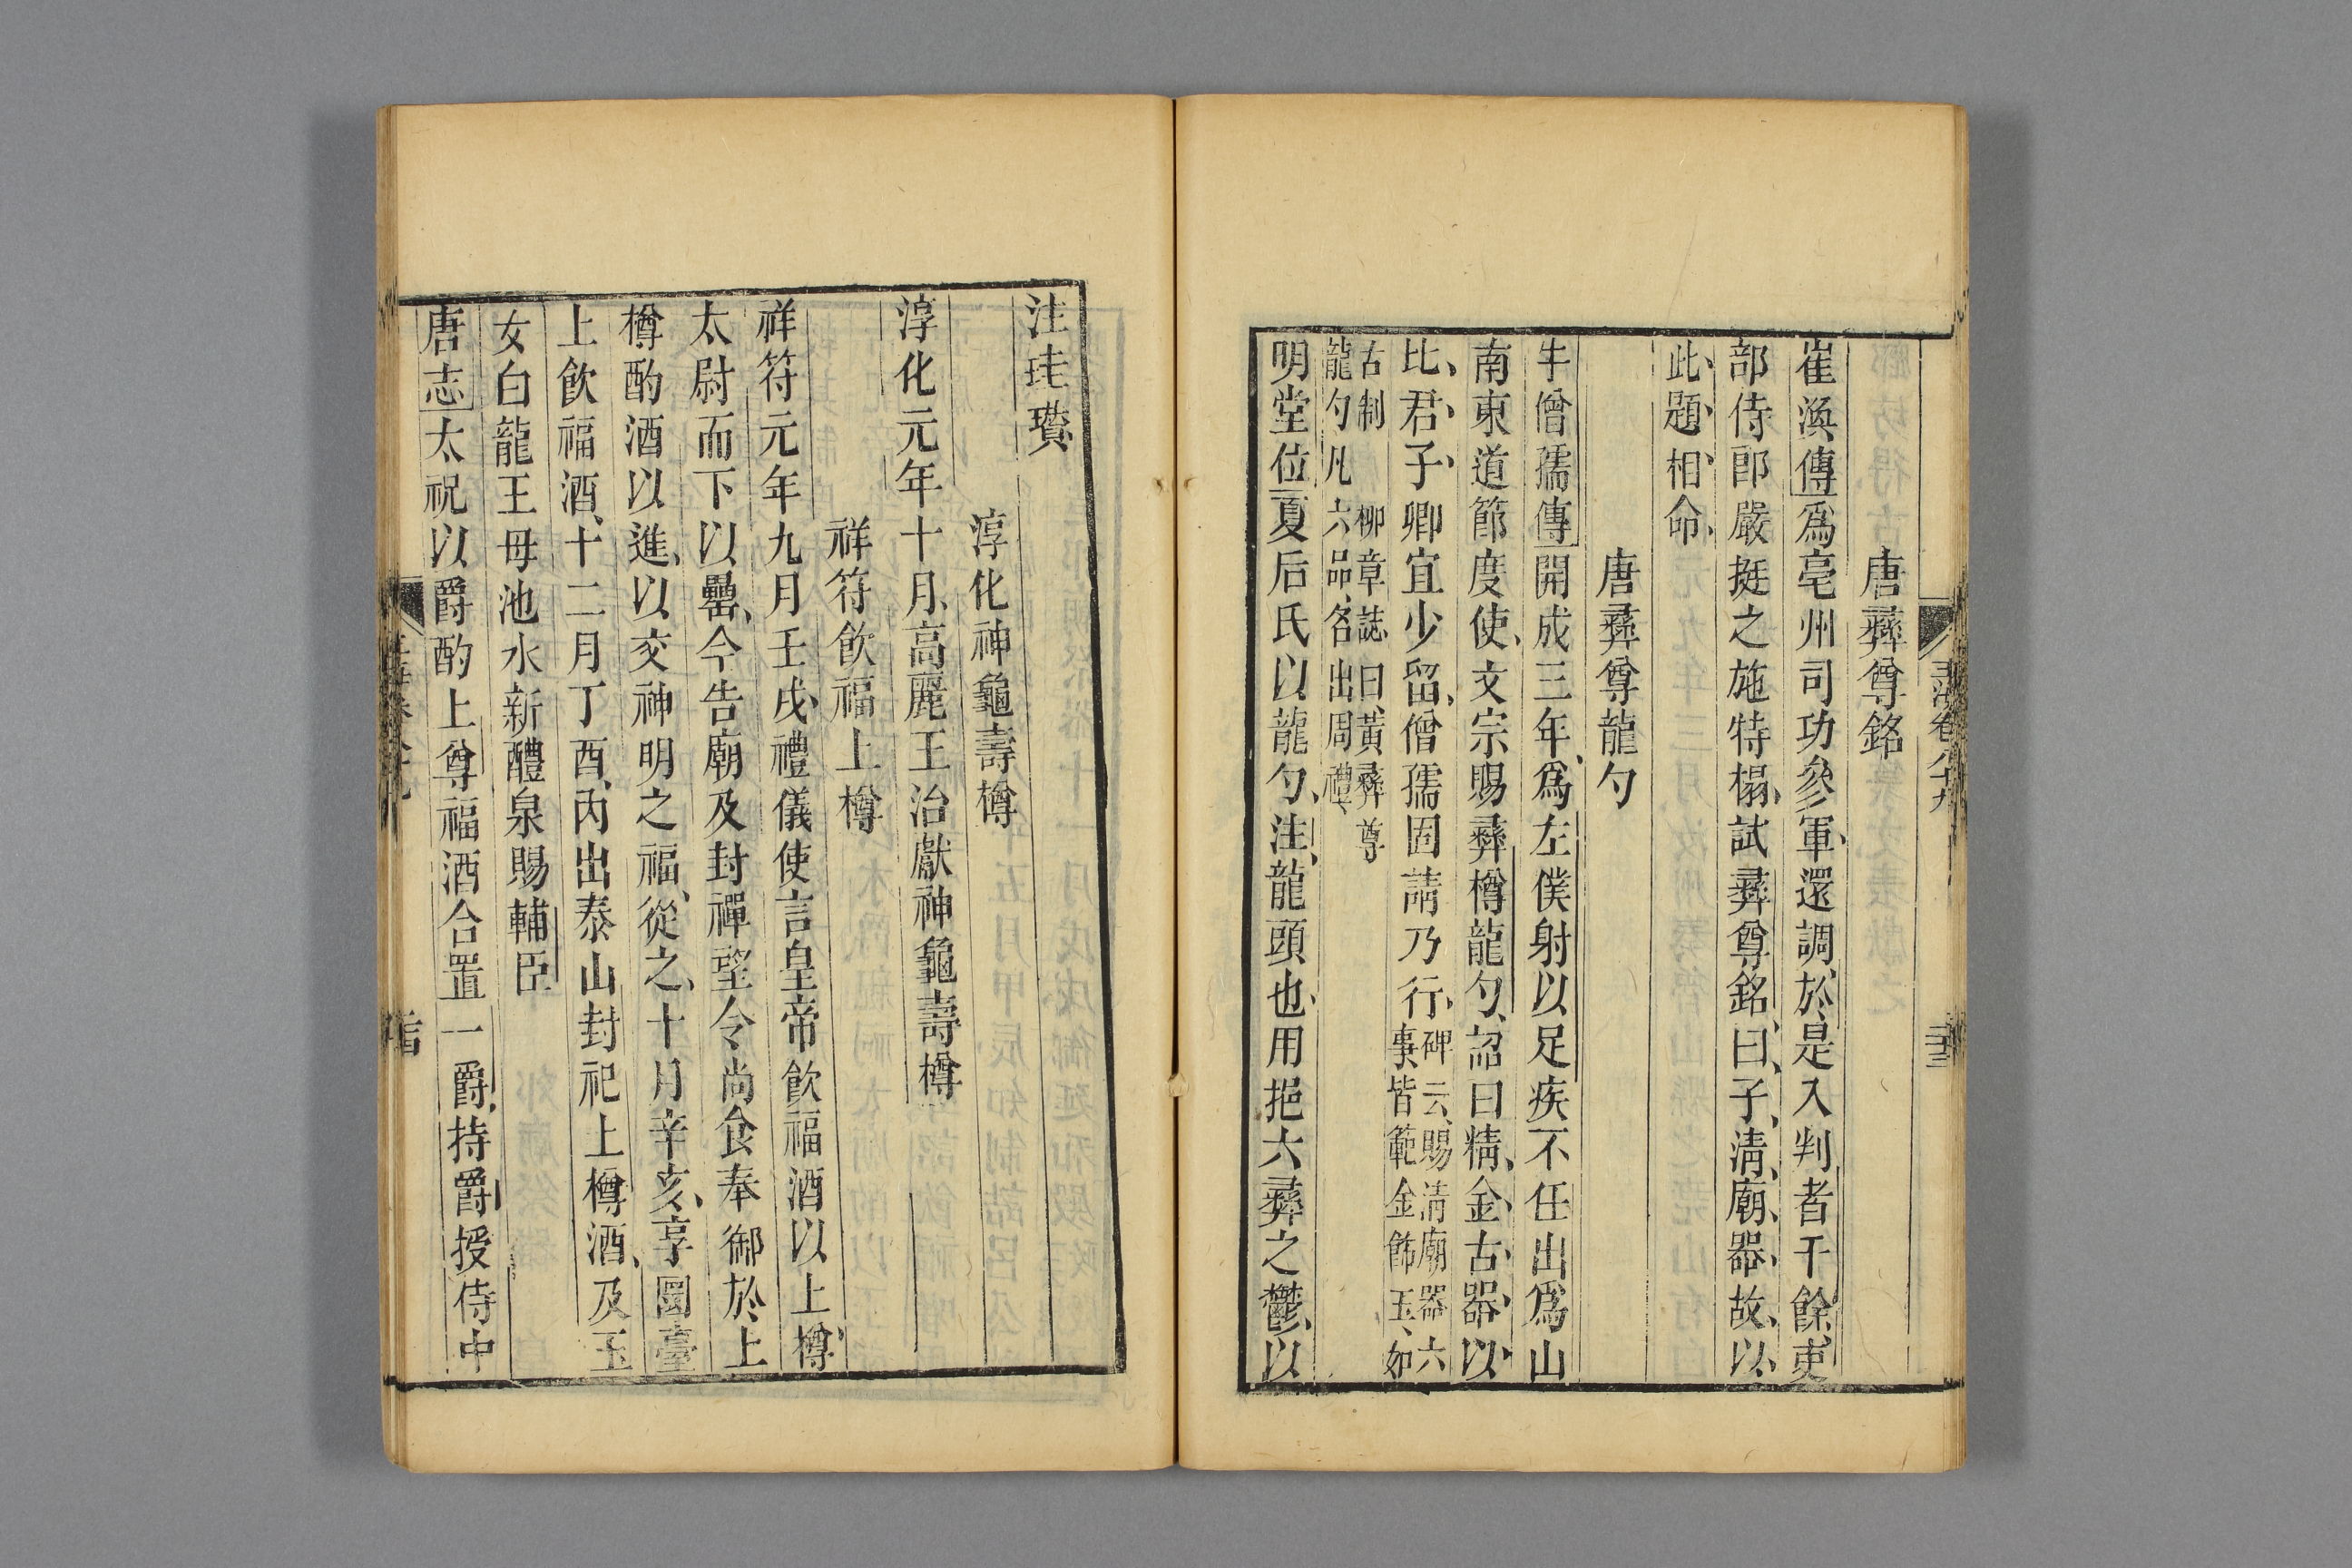 玉海卷八十九
唐彞尊銘
崔渙傳爲亳州司功參軍還調於是入判者千餘吏
部侍郎嚴挺之施特榻試彞尊銘曰子清廟器故以
此題相命
唐彞尊龍勺
牛僧孺傳開成三年爲左僕射以足疾不任出爲山
南東道節度使文宗賜彞樽龍勺詔曰精金古器以
比君子卿宜少留僧孺固請乃行碑云賜清廟器六
事皆範金飾玉如
古制　柳章誌曰黃彞尊
龍勺凡六品各出周禮
明堂位夏后氏以龍勺注龍頭也用挹六彞之鬱以
注珪瓚
淳化神龜壽樽
淳化元年十月高麗王治獻神龜壽樽
祥符飲福上樽
祥符元年九月壬戌禮儀使言皇帝飲福酒以上樽
太尉而下以罍今告廟及封禪望令尚食奉御於上
樽酌酒以進以交神明之福從之十月辛亥享圜臺
上飲福酒十二月丁酉內出泰山封祀上樽酒及玉
女白龍王母池水新醴泉賜輔臣
唐志太祝以爵酌上尊福酒合置一爵持爵授侍中